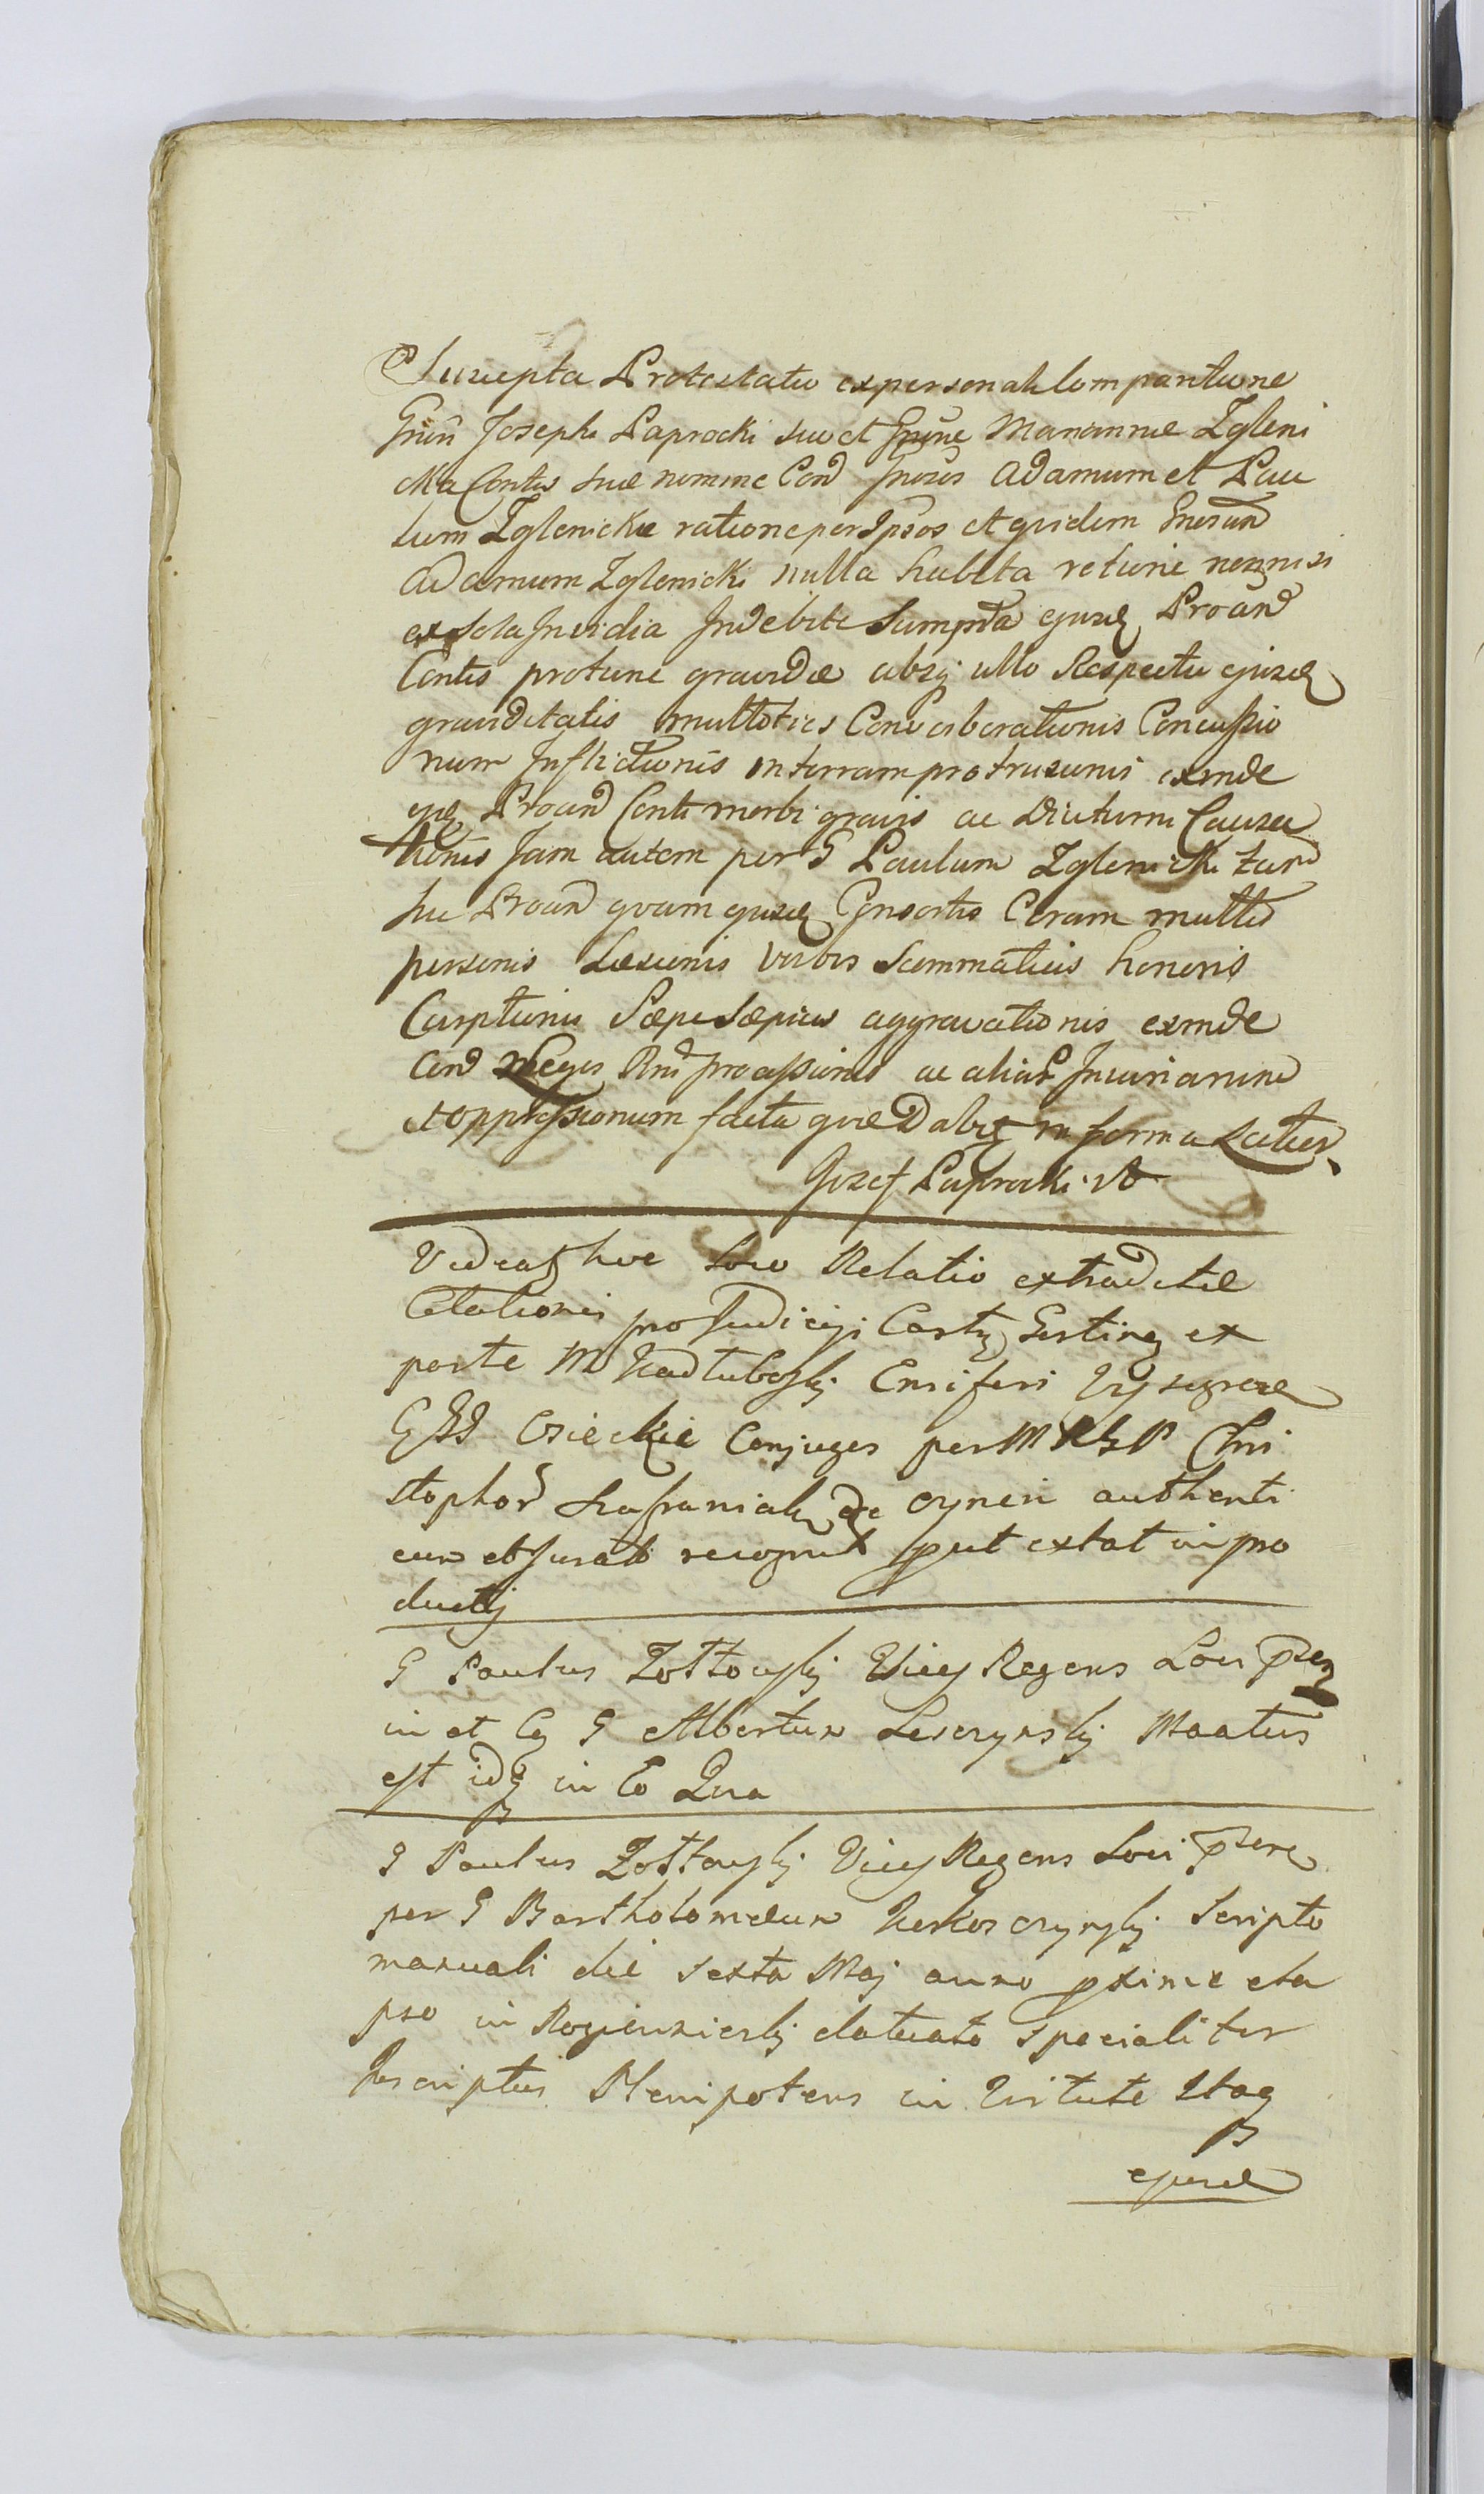 Suscepta Protestatio ex personali Comparitione
Gnsi Joseph Paprocki suo et Gnsae Mariannae Zgleni
cka Contis suae nomine Con Gnosos Adamum et Pau
lum Zglenickie ratione per Ipsos et quidem Gnosum
Adamum Zglenicki nulla habita ratione nonnisi
ex sola Invidia Indebite Sumpta ejusd Proan
Contis protunc gravidae absq ullo Respectu ejusd
graviditatis multoties Converberationis Concussio
num Inflictionis in terram protrusionis exinde
ejusd Proan Conti morbi gravis ac Diuturni Causa
tionis Jam autem per G Paulum Zglenicki tam
hu Proan quam ejusd Consortis Coram multis
personis Laesionis verbis Scommaticis honoris
Carptionis Saepe Saepius aggravationis exinde
Con Leges Rni processionis ac aliar Injuriarum
et oppressionum facta quae Dabit in forma Latior
Jozef Paprocki
Videat hoc loco Relatio extraditae
Citationis pro Judicijs Castr Gertin ex
parte M Nadtubosky Ensiferi Vyssogrod
G GG Osieckie Conjuges per M Chri
stophor de oynen authenti
cum et Jurato recognit put extat in pro
ductij
G Paulus Zottowsky Vicey Regens Loci psen
in et Cg G Albertum Lesczynsky Moatus
est idq in Eo Qua
G Paulus Zottowsky Vicey Regens Loci psen
per G Bartholomeum Scripto
manuali die sexta Maj anno pxime ela
pso in datuato specialiter
Inscriptus Plenipotens in Virtute Itaq
ejusd